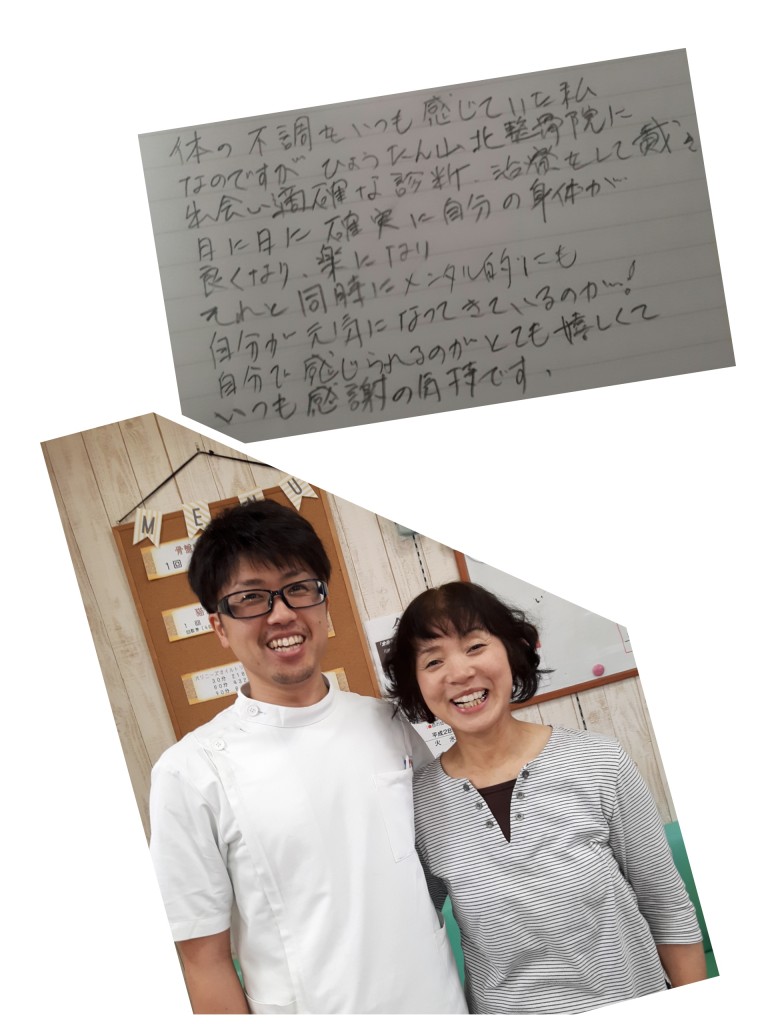 体の不調をいつも感じていた私
なのですが ひょうたん山北整骨院に
出会い適確な診断、治療をして戴き
日に日に確実に自分の身体が
良くなり、楽になり
それと同時にメンタル的にも
自分が元気になってきているのが!
自分で感じられるのがとても嬉しくて
いつも感謝の気持です。
MENU
骨盤
1回
猫
1回
バリニーズオイルト
30分
60分
平成28
火 水